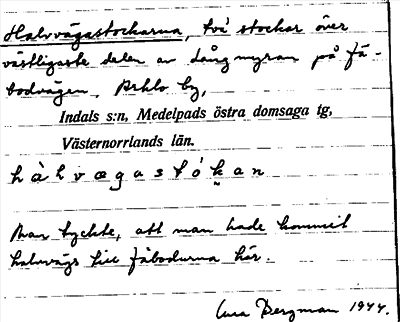 Halvvägastockarna, två stockar över
västligaste delen av Långmyran på fä-
bodvägen, by,
Indals s:n, Medelpads östra domsaga tg,
Västernorrlands län.
hàlvægastókan
Man tyckte, att man hade kommit
halvvägs till fäbodarna här.
Bergman 1944.